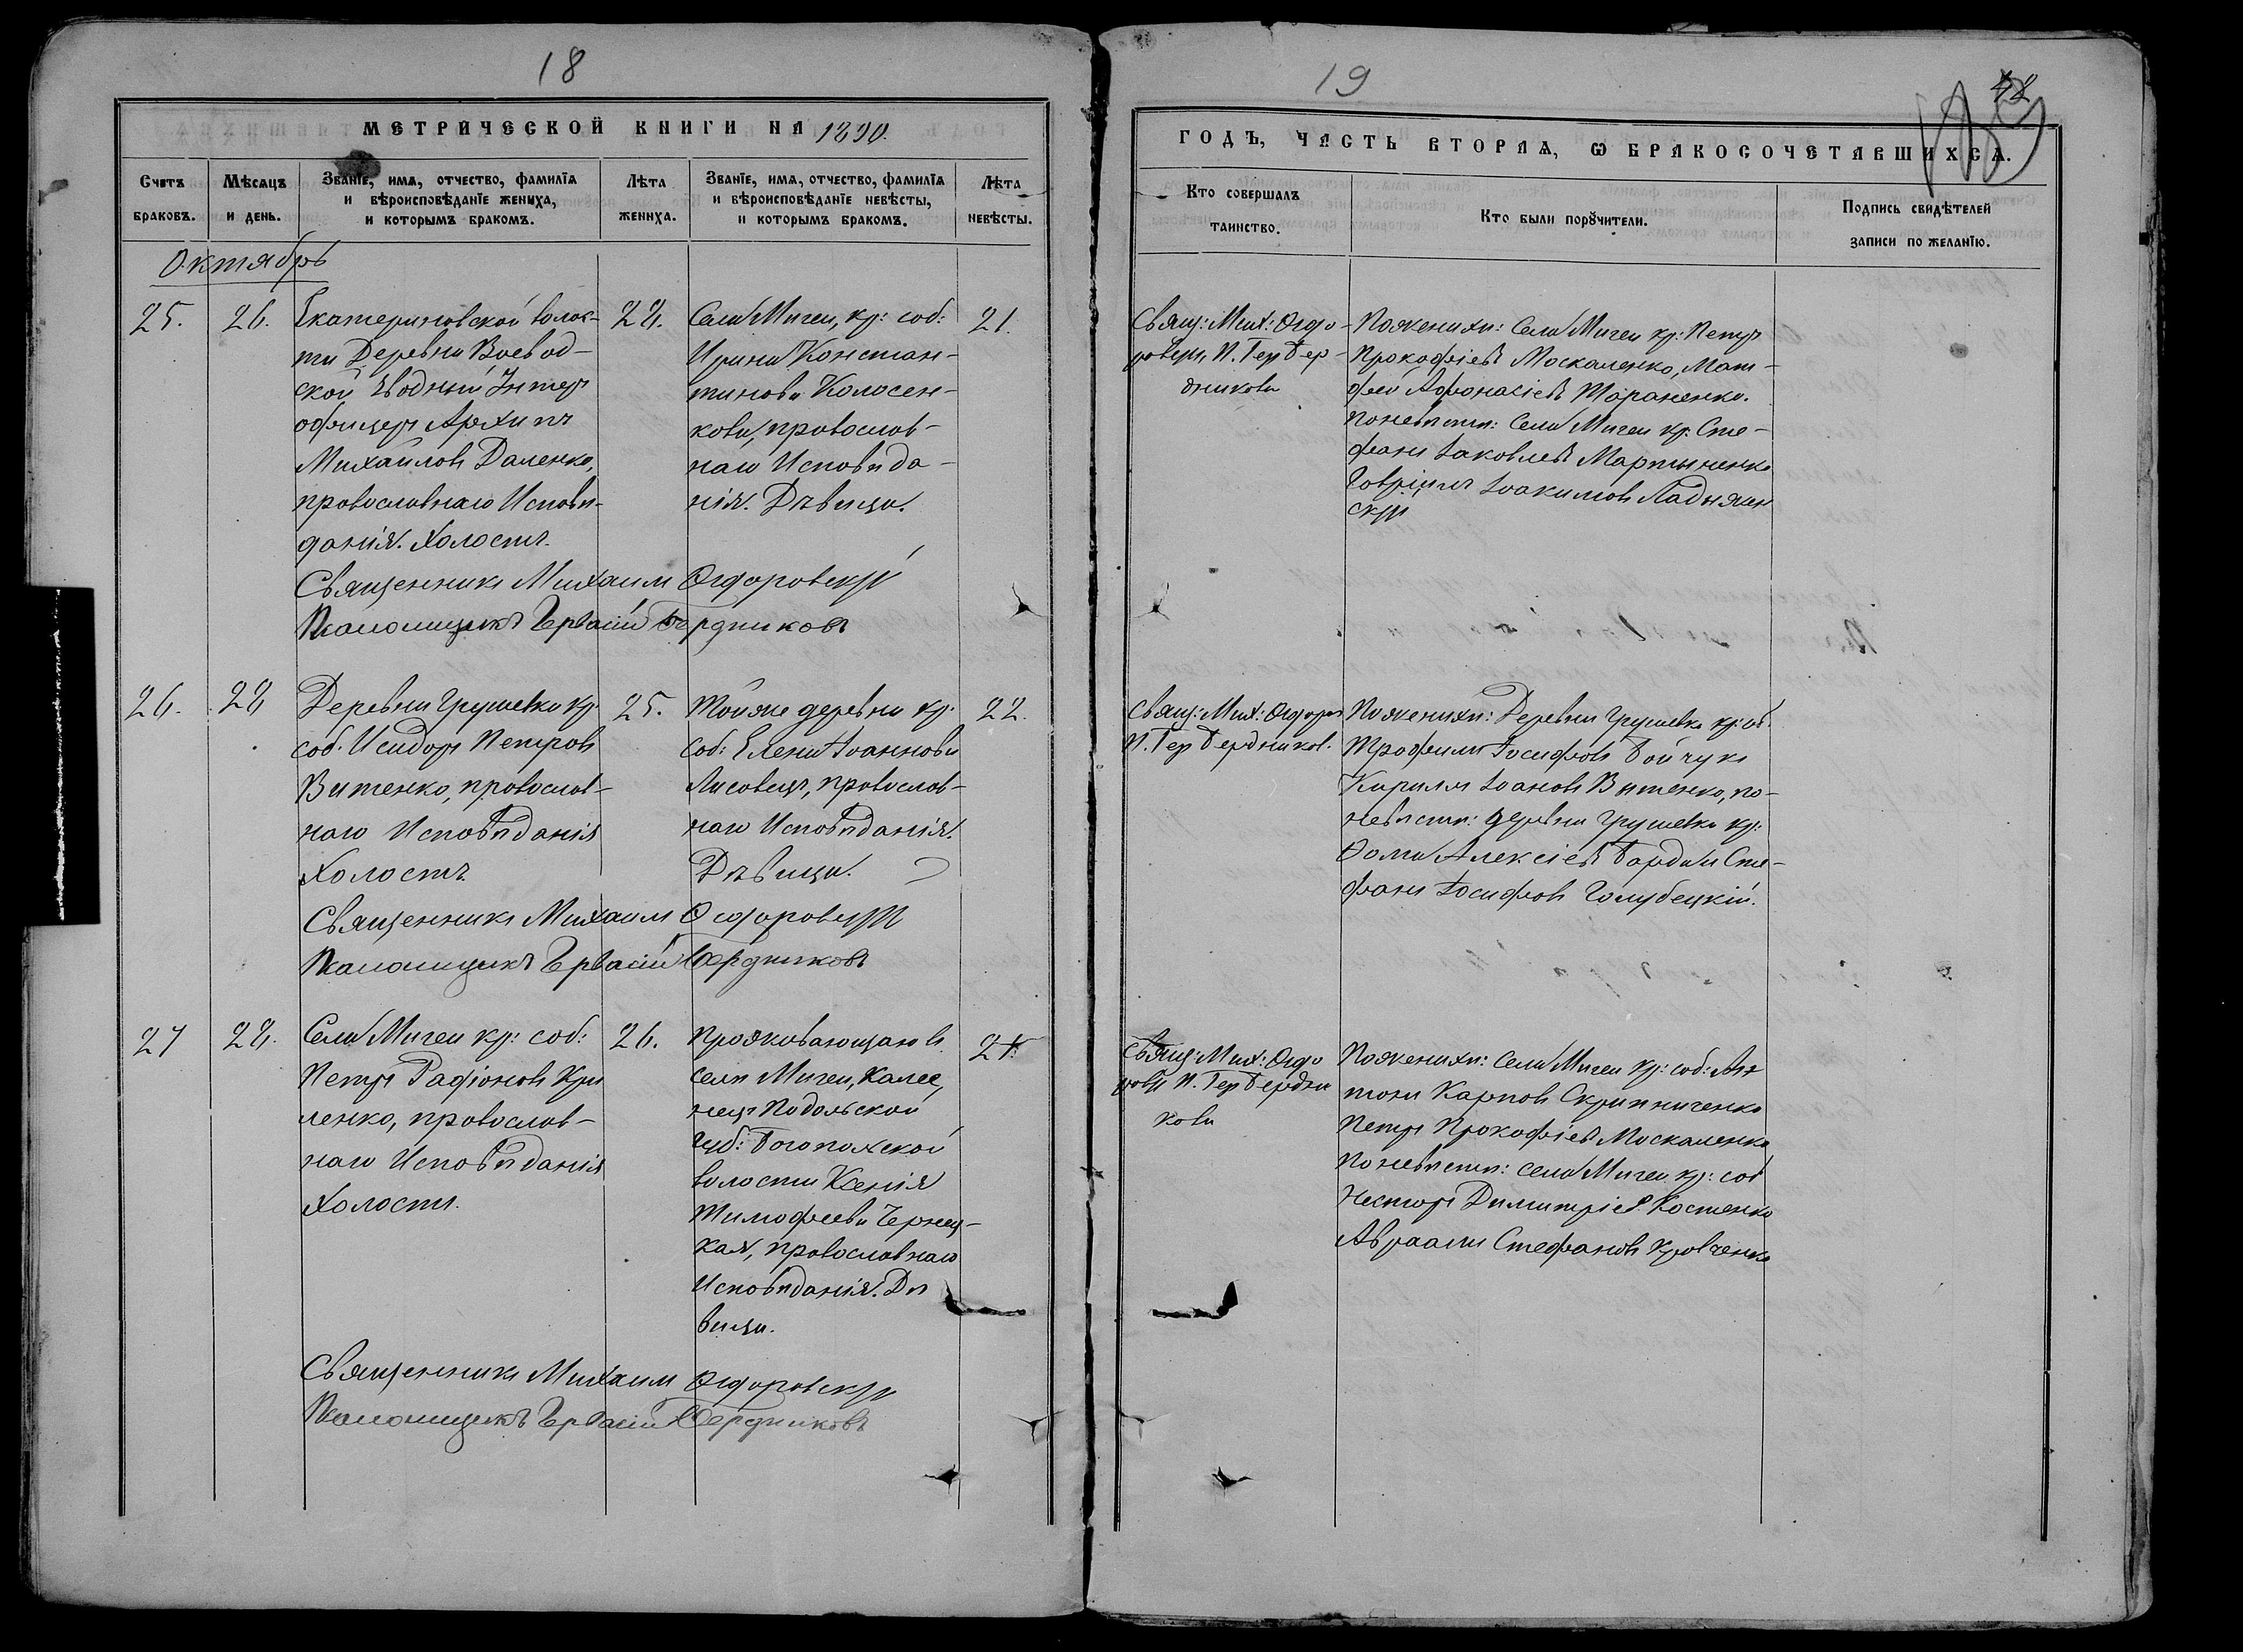 18
МЕТРИЧЕСКОЙ КНИГИ НА 1890.
Счетъ браковъ.
Мѣсяцъ и день.
Званіе, имя, отчество, фамилія и вѣроисповѣданіе жениха, и которымъ бракомъ.
Лѣта жениха.
Званіе, имя, отчество, фамилія и вѣроисповѣданіе невѣсты, и которымъ бракомъ.
Лѣта невѣсты.
Октябрь
25.
26.
Екатериновской волос-
ти Деревни Воевод-
ской Взводный Унтер
офицеръ Архипъ
Михайловъ Даленко,
православнаго Исповѣ-
данія. Холостъ.
28.
Села Мигеи, кр: соб:
Ирина Констан-
тинова Колосен-
кова, православ-
наго Исповѣда-
нія. Дѣвица.
21.
Священникъ Михаилъ Ѳедоровскій
Псаломщикъ Гервасій Бердниковъ
26.
28
Деревни Грушевки кр.
соб. Исидоръ Петровъ
Витенко, православ-
наго Исповѣданія
Холостъ.
25.
Тойже деревни кр.
соб: Елена Іоаннова
Лисовецъ, православ-
наго Исповѣданія.
Дѣвица.
22.
Священникъ Михаилъ Ѳедоровскій
Псаломщикъ Гервасій Бердниковъ
27
28.
Села Мигеи кр: соб:
Петръ Радіоновъ Кри
ленко, православ-
наго Исповѣданія
Холостъ.
26.
Проживающая въ
селѣ Мигеи,
Подольской
губ: Богопольской
волости Ксенія
Тимофеева Чернец-
кая, православнаго
Исповѣданія. Дѣ
вица.
21.
Священникъ Михаилъ Ѳедоровскій
Псаломщикъ Гервасій Бердниковъ
19
48
ГОДЪ, ЧАСТЬ ВТОРАЯ, Ѡ БРАКОСОЧЕТАВШИХСЯ.
Кто совершалъ таинство.
Кто были порꙋчители.
Подпись свидѣтелей записи по желанію.
Свящ: Мих: Ѳедо-
ровскій П. Гер Бер-
дниковъ
По женихѣ: Села Мигеи кр: Петръ
Прокофіевъ Москаленко, Мат-
фей Афонасіевъ Тараненко.
По невѣстѣ: Села Мигеи кр: Сте-
фанъ Іаковлевъ Мартыненко
Гавріилъ Іоакимовъ Ладыжен
скій
Свящ: Мих: Ѳедоров
П. Гер Бердников.
По женихѣ: Деревни Грушевки кр: об.
Трофимъ Іосифовъ Бойчукъ
Кириллъ Іоановъ Витенко, по-
невѣстѣ: деревни Грушевки кр:
Ѳома Алексіевъ и Сте-
фанъ Іосифовъ Голубецкій.
Свящ: Мих: Ѳедо
ровс П. Гер Бердни
ковъ
По женихѣ: Села Мигеи кр: соб: Ан
тонъ Карповъ Скрипниченко
Петръ Прокофіевъ Москаленко
По невѣстѣ: села Мигеи кр: соб
Несторъ Димитріев Костенко
Авраамъ Стефановъ Кравченко